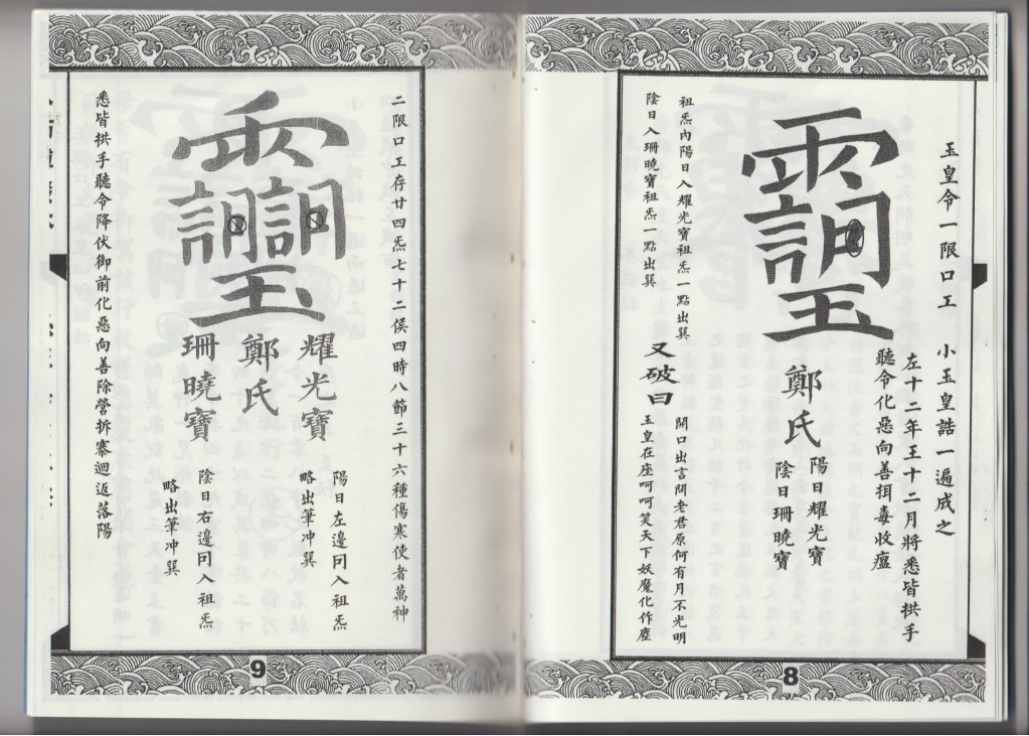 玉皇令一限口工 小玉皇誥一遍成之
左十二年王十二月將悉皆拱手
聽令化惡向善揖毒收瘟
鄭氏
陽日耀光寶
陰日珊曉寶
祖炁內陽日入耀光寶祖炁一點出巽
陰日入珊曉寶祖炁一點出巽
又破曰
開口出言閉老君原何有月不光明
玉皇在座呵呵笑天下妖魔化作塵
8
二限口工存廿四炁七十二侯四時八節三十六種傷寒使者萬神
耀光寶
陽日左邊冋入祖炁
略出筆冲巽
鄭氏
珊曉寶
陰日右邊冋入祖炁
略出筆冲巽
悉皆拱手聽令降伏御前化惡向善除營拆寨迴返落陽
9